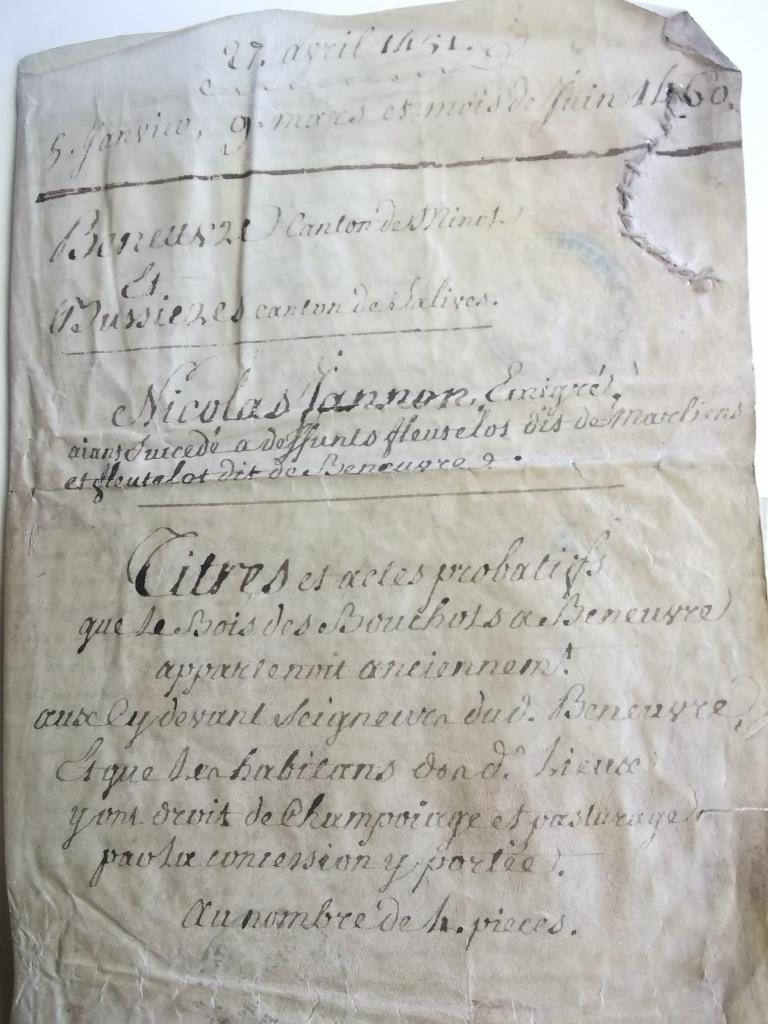 27. avril 1451.
5. Janvier, 9. mars et mois de Juin 1460.
Beneuvre Canton de Minot
Et
Bussieres canton de Salives.
Nicolas Jannon, Emigré,
aiant succedé a deffunts fleutelot dit de Marliens
et fleutelot dit de Beneuvre.
Titres et actes probatifs
que le Bois des Bouchots a Beneuvre
appartenoit anciennemt.
aux Cy devant Seigneurs dud. Beneuvre,
Et que les habitans des d. Lieux
y ont droit de Champoiage et pasturage
par la concession y portée.
au nombre de 4. pieces.